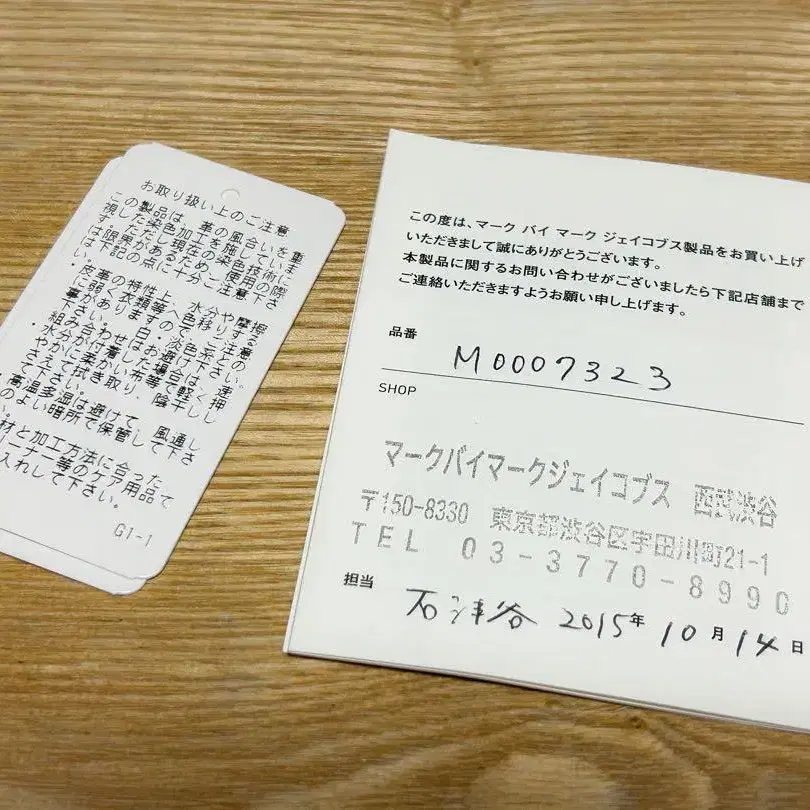 お取り扱い上のご注意
この製品は、革の風合いを重
視した染色加工を施していま
す。ただし現在の染色技術に
は限界があるため、使用の際
は下記の点に十分ご注意下さ
い。
・皮革の特性上、水分や摩擦
に弱く衣類等へ色移りする
事がありますのでご注意
下さい。白・淡色系との
組み合わせはお避け下さい。
・水分が付着した場合は、速
やかに柔かい布等で軽く押
さえて拭き取り、陰干し
て下さい。
・高温多湿は避けて、風通し
のよい暗所で保管して下さ
い。
材と加工方法に合った
リーナー等のケア用品で
入れして下さい。
G1-1
この度は、マーク バイ マーク ジェイコブス製品をお買い上げ
いただきまして誠にありがとうございます。
本製品に関するお問い合わせがございましたら下記店舗まで
ご連絡いただきますようお願い申し上げます。
品番
M0007323
SHOP
マークバイマークジェイコブス 西武渋谷
〒150-8330 東京都渋谷区宇田川町21-1
TEL 03-3770-8990
担当 石津谷 2015年10月14日